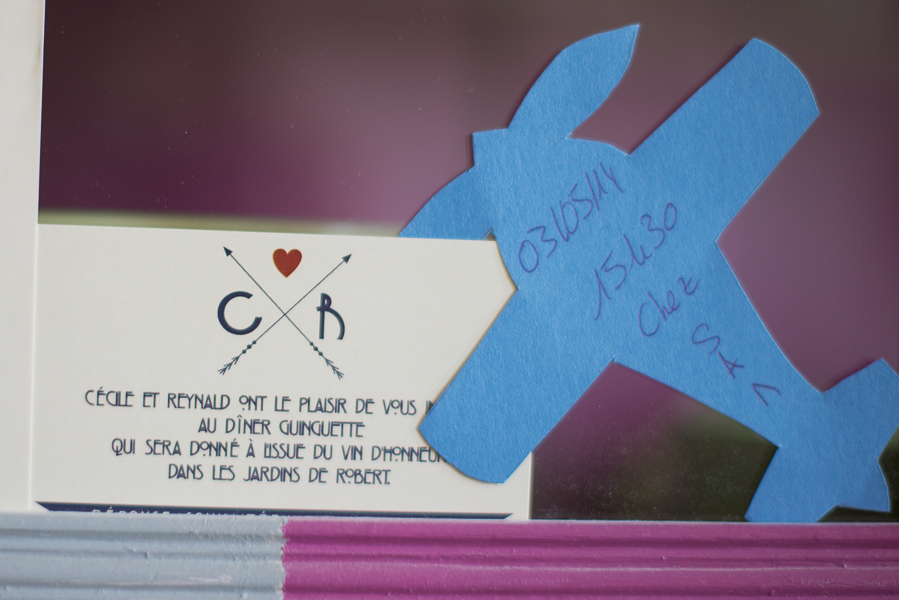 C R
CÉCILE ET REYNALD ONT LE PLAISIR DE VOUS
AU DÎNER GUINGUETTE
QUI SERA DONNÉ À L'ISSUE DU VIN D'HONNEUR
DANS LES JARDINS DE ROBERT.
03/05/14
15h30
Chez